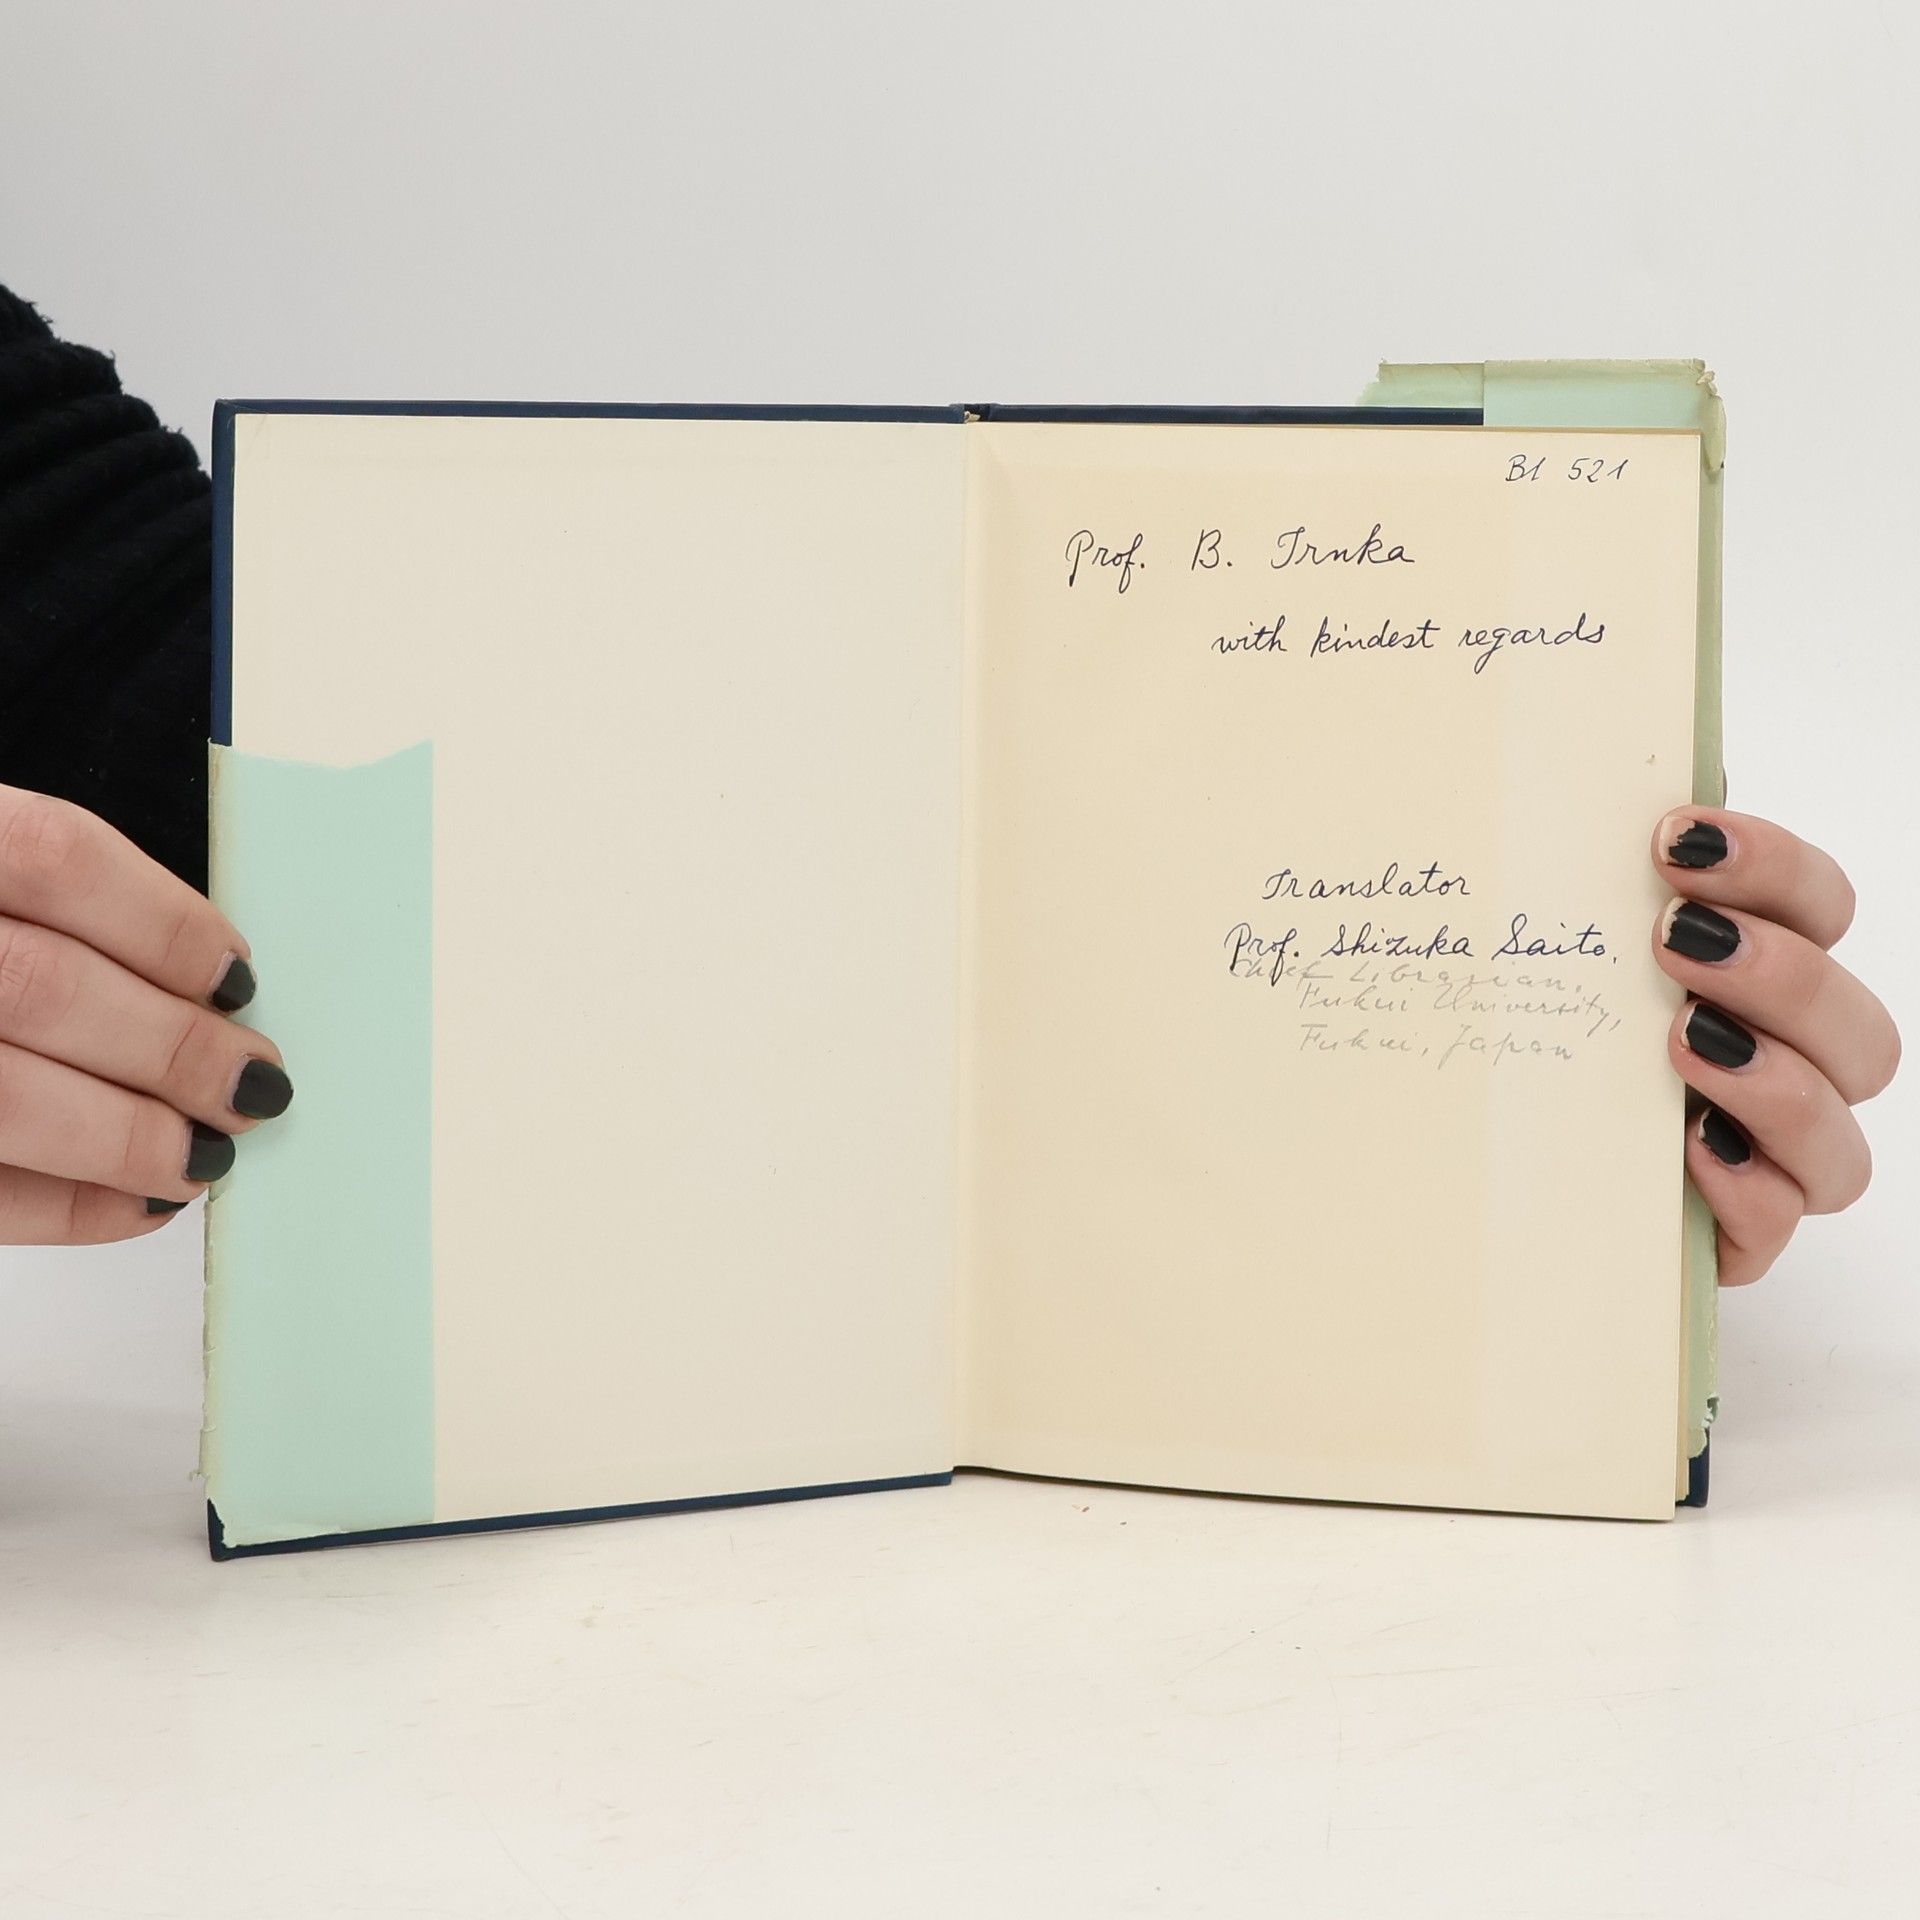 B1 521
Prof. B. Trnka
with kindest regards
Translator
Prof. Shizuka Saito.
Chief Librarian,
Fukui University,
Fukui, Japan